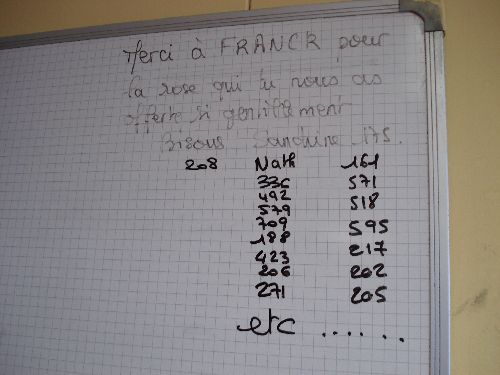 Merci à FRANCK pour
la rose qui tu nous as
offerte si gentillement
Bisous Sandrine 175.
208 Nath 161
336 571
492 518
579
709 595
188 217
423 202
206 205
271
etc ......